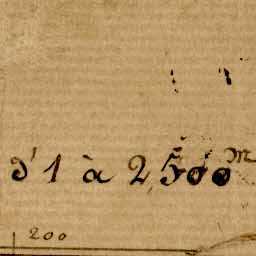 d'1 à 2500m
200